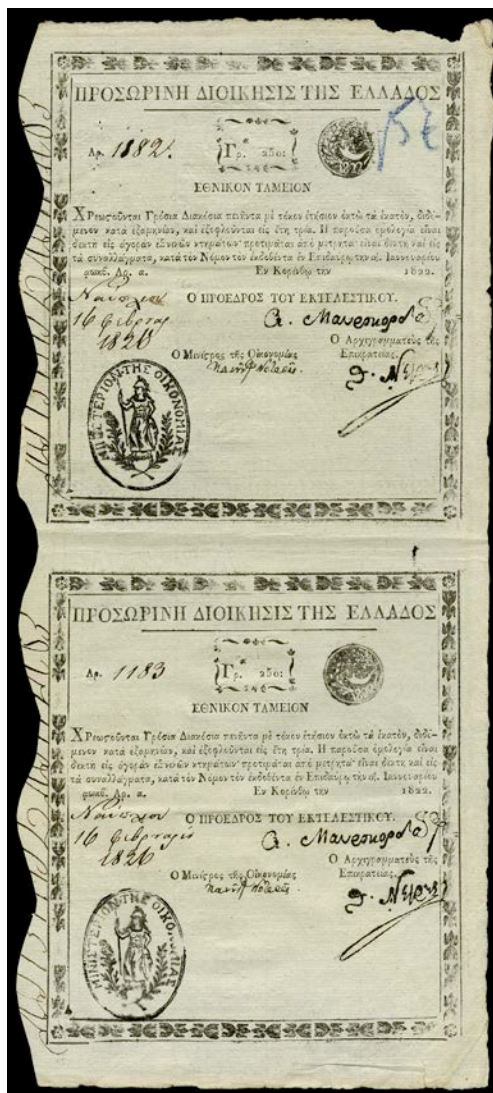 ΠΡΟΣΩΡΙΝΗ ΔΙΟΙΚΗΣΙΣ ΤΗΣ ΕΛΛΑΔΟΣ
Αρ. 1182.
Γρ. 250:
ΕΘΝΙΚΟΝ ΤΑΜΕΙΟΝ
Χρεωστοῦνται Γρόσια Διακόσια πενῆντα μὲ τόκον ἐτήσιον ὀκτὼ τὰ ἑκατὸν, διδό-
μενον κατὰ ἑξαμηνίαν, καὶ ἐξοφλοῦνται εἰς ἔτη τρία. Η παροῦσα ὁμολογία εἶναι
δεκτὴ εἰς ἀγορὰν ἐθνικῶν κτημάτων· προτιμᾶται ἀπὸ μετρητά· εἶναι δεκτὴ καὶ εἰς
τὰ συναλλάγματα, κατὰ τὸν Νόμον τὸν ἐκδοθέντα ἐν Επιδαύρῳ τὴν Ιαννουαρίου
αωκβ. Αρ. α. Εν Κορίνθῳ τὴν 1822.
Ναύπλιον Ο ΠΡΟΕΔΡΟΣ ΤΟΥ ΕΚΤΕΛΕΣΤΙΚΟΥ.
16 Φεβρουαρ
1826
Α. Μαυροκορδά
Ο Μινίστρος τῆς Οἰκονομίας
Πανοῦτ Νοταρᾶς.
Ο Αρχιγραμματεὺς τῆς
Επικρατείας.
Θ. Νέγρης
ΜΙΝΙΣΤΕΡΙΟΝ ΤΗΣ ΟΙΚΟΝΟΜΙΑΣ
ΠΡΟΣΩΡΙΝΗ ΔΙΟΙΚΗΣΙΣ ΤΗΣ ΕΛΛΑΔΟΣ
Αρ. 1183
Γρ. 250:
ΕΘΝΙΚΟΝ ΤΑΜΕΙΟΝ
Χρεωστοῦνται Γρόσια Διακόσια πενῆντα μὲ τόκον ἐτήσιον ὀκτὼ τὰ ἑκατὸν, διδό-
μενον κατὰ ἑξαμηνίαν, καὶ ἐξοφλοῦνται εἰς ἔτη τρία. Η παροῦσα ὁμολογία εἶναι
δεκτὴ εἰς ἀγορὰν ἐθνικῶν κτημάτων· προτιμᾶται ἀπὸ μετρητά· εἶναι δεκτὴ καὶ εἰς
τὰ συναλλάγματα, κατὰ τὸν Νόμον τὸν ἐκδοθέντα ἐν Επιδαύρῳ τὴν Ιαννουαρίου
αωκβ. Αρ. α. Εν Κορίνθῳ τὴν 1822.
Ναύπλιον Ο ΠΡΟΕΔΡΟΣ ΤΟΥ ΕΚΤΕΛΕΣΤΙΚΟΥ.
16 Φεβρουαρίου
1826
Α. Μαυροκορδά
Ο Μινίστρος τῆς Οἰκονομίας
Πανοῦτ Νοταρᾶς.
Ο Αρχιγραμματεὺς τῆς
Επικρατείας.
Θ. Νέγρης
ΜΙΝΙΣΤΕΡΙΟΝ ΤΗΣ ΟΙΚΟΝΟΜΙΑΣ